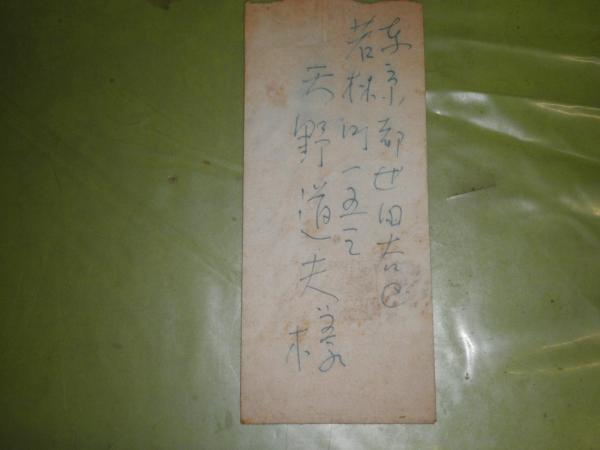 東京都世田谷区
若林町一五三
天野道夫様